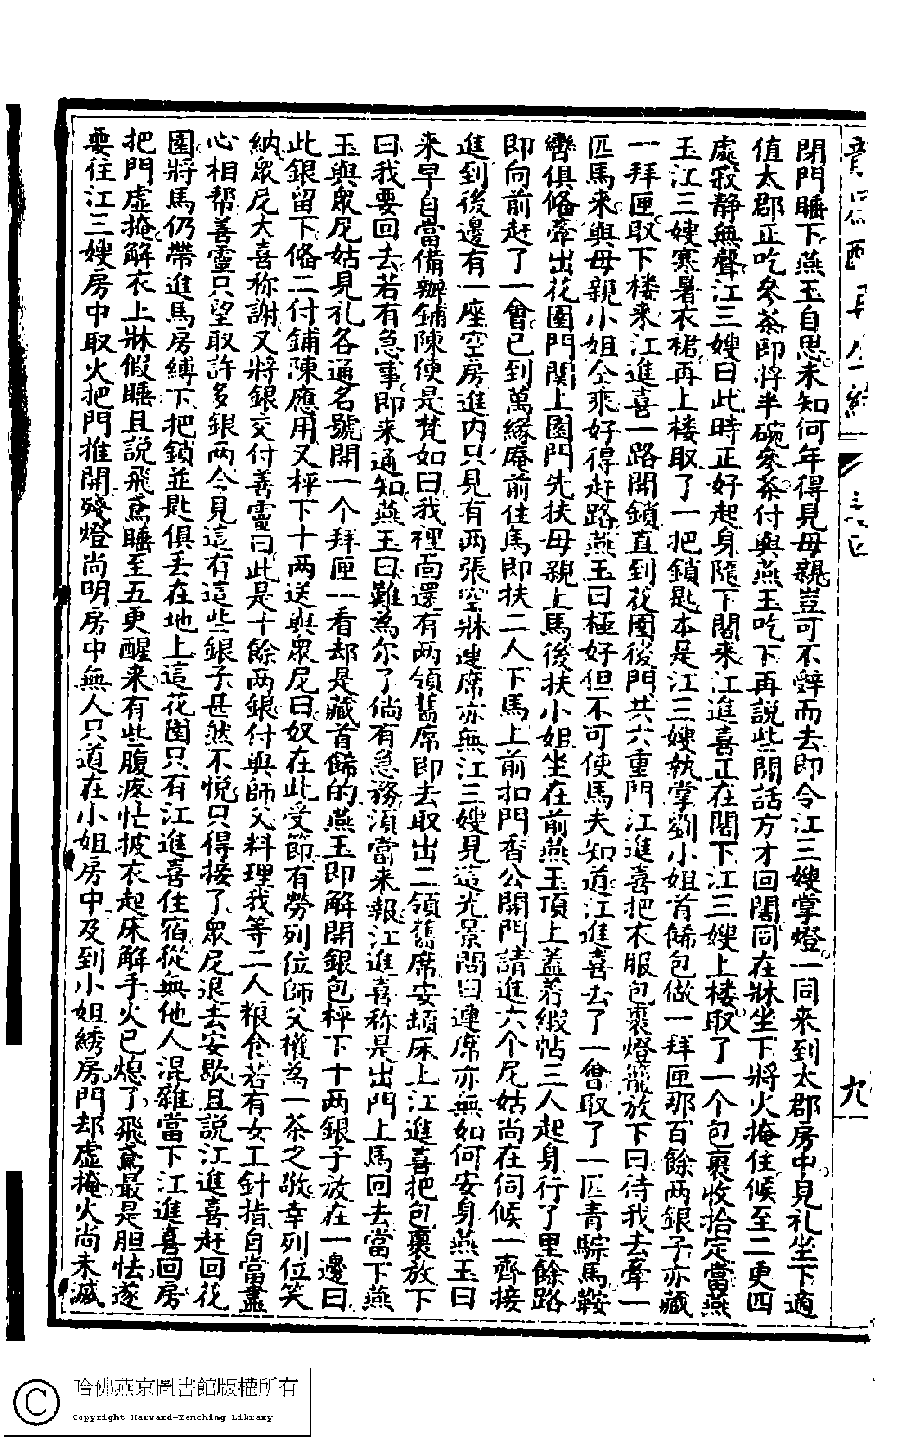 閉門睡下燕玉自思未知何年得見母親豈可不辭而去即令江三嫂掌燈一同來到太郡房中見礼坐下適
值太郡正吃參茶即將半碗參茶付與燕玉吃下再說些閒話方才回閣同在牀坐下將火掩住候至二更四
處寂靜無聲江三嫂曰此時正好起身隨下閣來江進喜正在閣下江三嫂上樓取了一个包裹收拾定當燕
玉江三嫂寒暑衣裙再上樓取了一把鎖匙本是江三嫂執掌劉小姐首飾包做一拜匣那百餘两銀子亦藏
一拜匣取下樓來江進喜一路開鎖直到花園後門共六重門江進喜把衣服包裹燈籠放下曰待我去牽一
匹馬來與母親小姐仝乘好得赶路燕玉曰極好但不可使馬夫知道江進喜去了一會取了一匹青騌馬鞍
轡俱俻牽出花園門關上園門先扶母親上馬後扶小姐坐在前燕玉頂上蓋着緞帖三人起身行了里餘路
即向前赶了一會已到萬緣庵前住馬即扶二人下馬上前扣門香公開門請進六个尼姑尚在伺候一齊接
進到後邊有一座空房進内只見有两張空牀連席亦無江三嫂見這光景問曰連席亦無如何安身燕玉曰
來早自當備辦鋪陳便是梵如曰我裡面還有两領舊席即去取出二領舊席安頓床上江進喜把包裹放下
曰我要回去若有急事即來通知燕玉曰難為尔了倘有急務須當來報江進喜称是出門上馬回去當下燕
玉與衆尼姑見礼各通名號開一个拜匣一看却是藏首飾的燕玉即解開銀包枰下十两銀子放在一邊曰
此銀留下俻二付鋪陳應用又枰下十两送與衆尼曰奴在此受節有勞列位師父權為一茶之敬幸列位笑
納衆尼大喜称謝又將銀交付善靈曰此是十餘两銀付與師父料理我等二人粮食若有女工針指自當盡
心相帮善靈只望取許多銀两今見這有這些銀子甚然不悅只得接了衆尼退去安歇且說江進喜赶回花
園將馬仍帶進馬房縛下把鎖並匙俱丢在地上這花園只有江進喜住宿從無他人混雜當下江進喜回房
把門虛掩解衣上牀假睡且說飛鳶睡至五更醒來有些腹疼忙披衣起床解手火已熄了飛鳶最是胆怯遂
要往江三嫂房中取火把門推開殘燈尚明房中無人只道在小姐房中及到小姐綉房門却虛掩火尚未滅
九
哈佛燕京圖書館版權所有
Copyright Harvard-Yenching Library